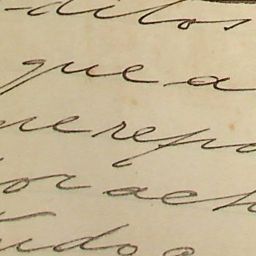 ditos
que a
ne repo
or ach
udo a